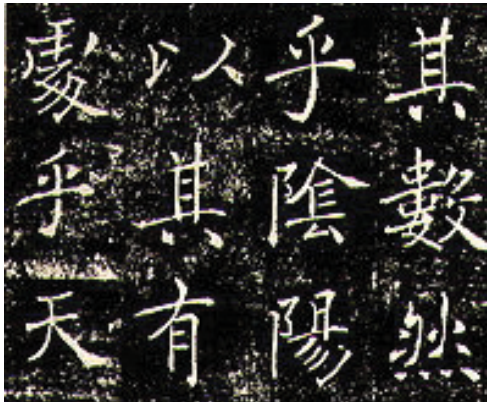 其數然
乎陰陽
以其有
處乎天